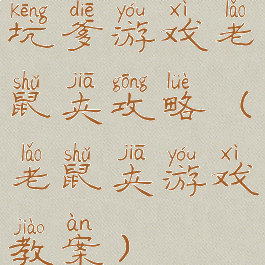 kēng diē yóu xì lǎo
坑爹游戏老
shǔ jiā gōng lüè
鼠夹攻略（
lǎo shǔ jiā yóu xì
老鼠夹游戏
jiào àn
教案）